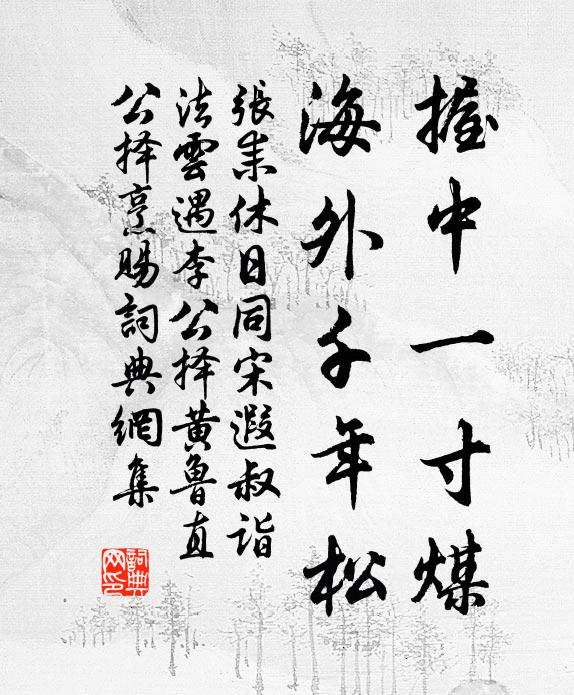 握中一寸煤
海外千年松
張耒休日同宋遐叔詣
法雲遇李公择黄魯直
公择烹賜詞典網集
詞典网印